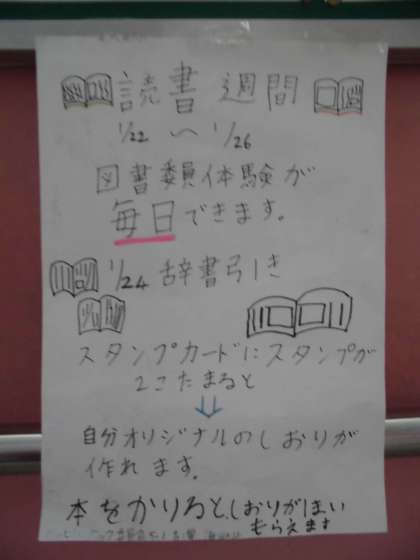 読書週間
1/22 〜 1/26
図書委員体験が
毎日できます。
1/24 辞書引き
スタンプカードにスタンプが
2こたまると
自分オリジナルのしおりが
作れます。
本をかりると、しおりが1まい
もらえます